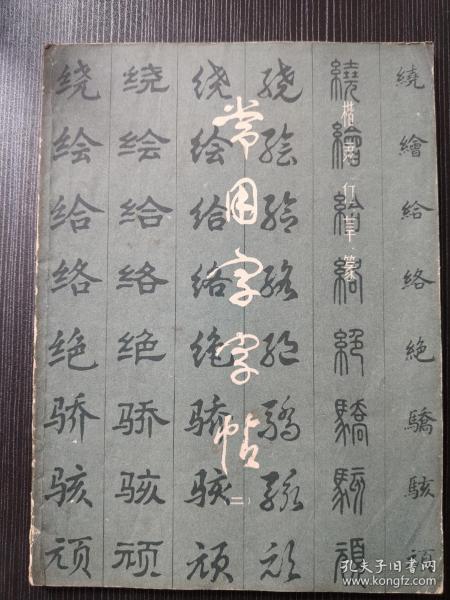 常用字字帖
二
楷·隶·行·草·篆
绕绘给络绝骄骇顽
绕绘给络绝骄骇顽
绕绘给络绝骄骇顽
绕绘给络绝骄骇顽
繞繪給絡絕驕駭頑
繞繪給絡絶驕駭頑
孔夫子旧书网